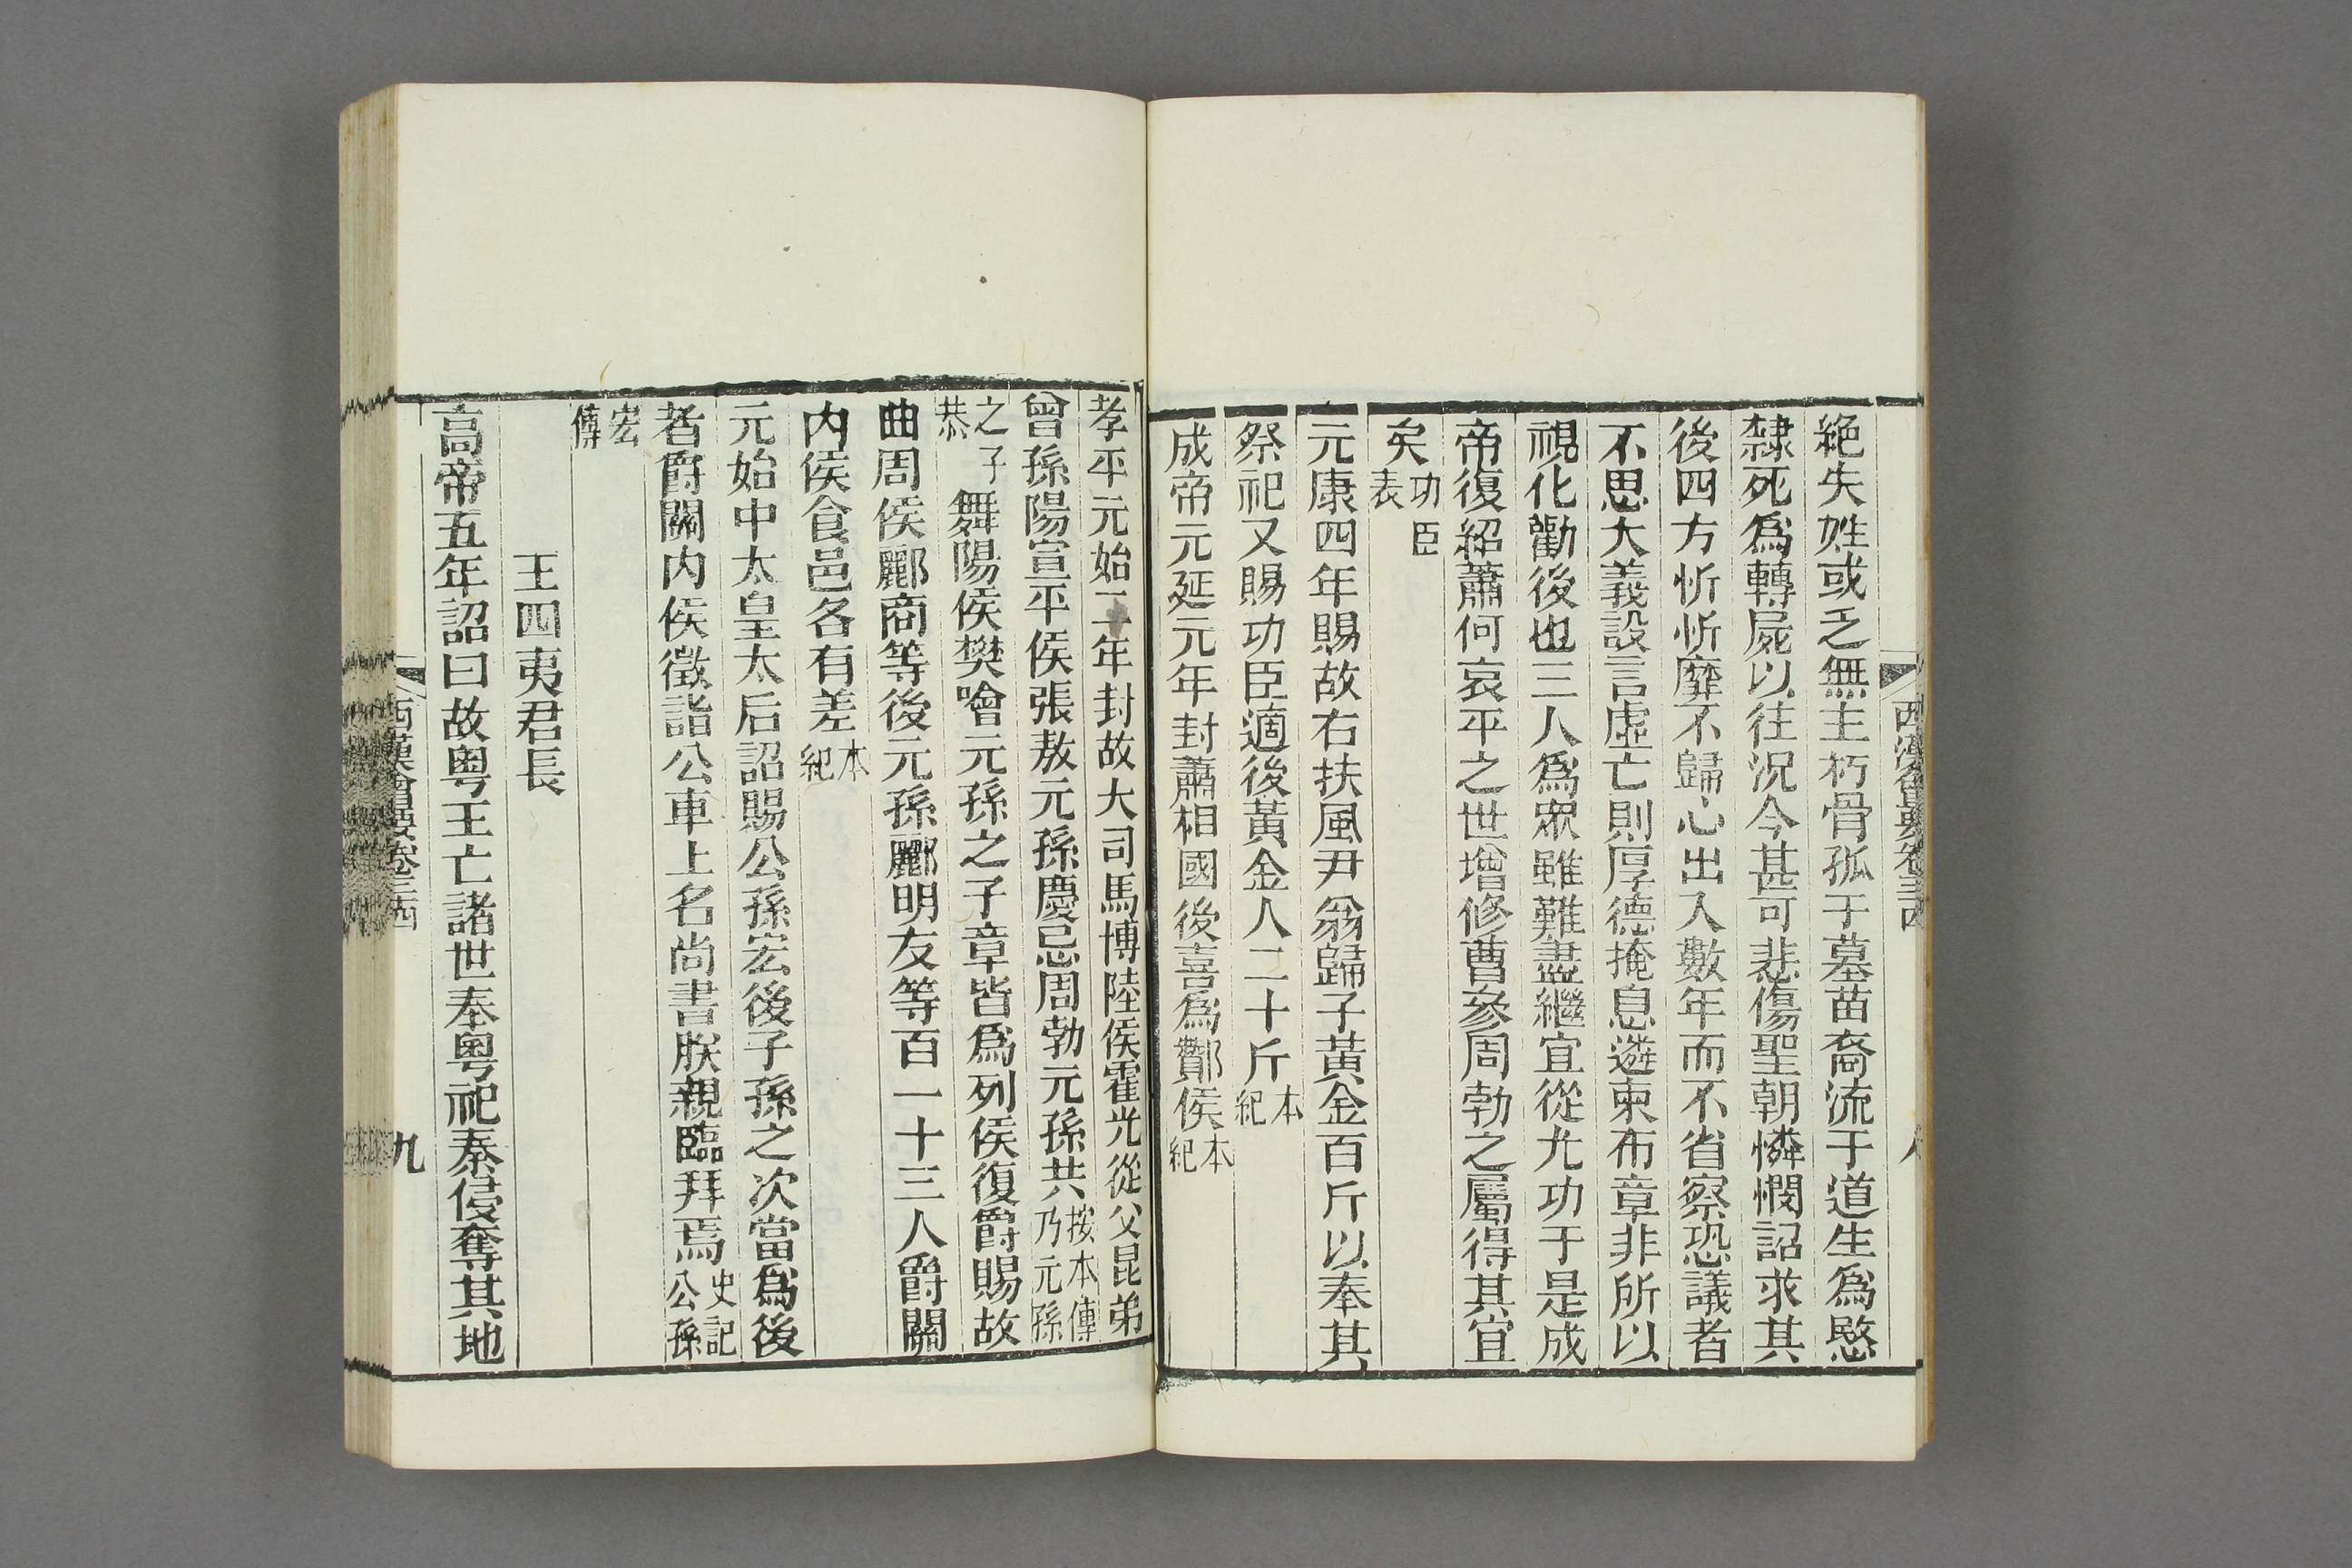 絕失姓或乏無主朽骨孤于墓苗裔流于道生爲愍
隸死爲轉屍以往況今甚可悲傷聖朝憐憫詔求其
後四方忻忻靡不歸心出入數年而不省察恐議者
不思大義設言虛亡則厚德掩息遴柬布章非所以
視化勸後也三人爲眾雖難盡繼宜從尤功于是成
帝復紹蕭何哀平之世增修曹參周勃之屬得其宜
矣功臣表
元康四年賜故右扶風尹翁歸子黃金百斤以奉其
祭祀又賜功臣適後黃金人二十斤本紀
成帝元延元年封蕭相國後喜爲酇侯本紀
孝平元始二年封故大司馬博陸侯霍光從父昆弟
曾孫陽宣平侯張敖元孫慶忌周勃元孫共按本傳乃元孫
之子恭舞陽侯樊噲元孫之子章皆爲列侯復爵賜故
曲周侯酈商等後元孫酈明友等百一十三人爵關
內侯食邑各有差本紀
元始中太皇太后詔賜公孫宏後子孫之次當爲後
者爵關內侯徵詣公車上名尚書朕親臨拜焉史記公孫
宏傳
王四夷君長
高帝五年詔曰故粵王亡諸世奉粵祀秦侵奪其地
西漢會要卷三四
九